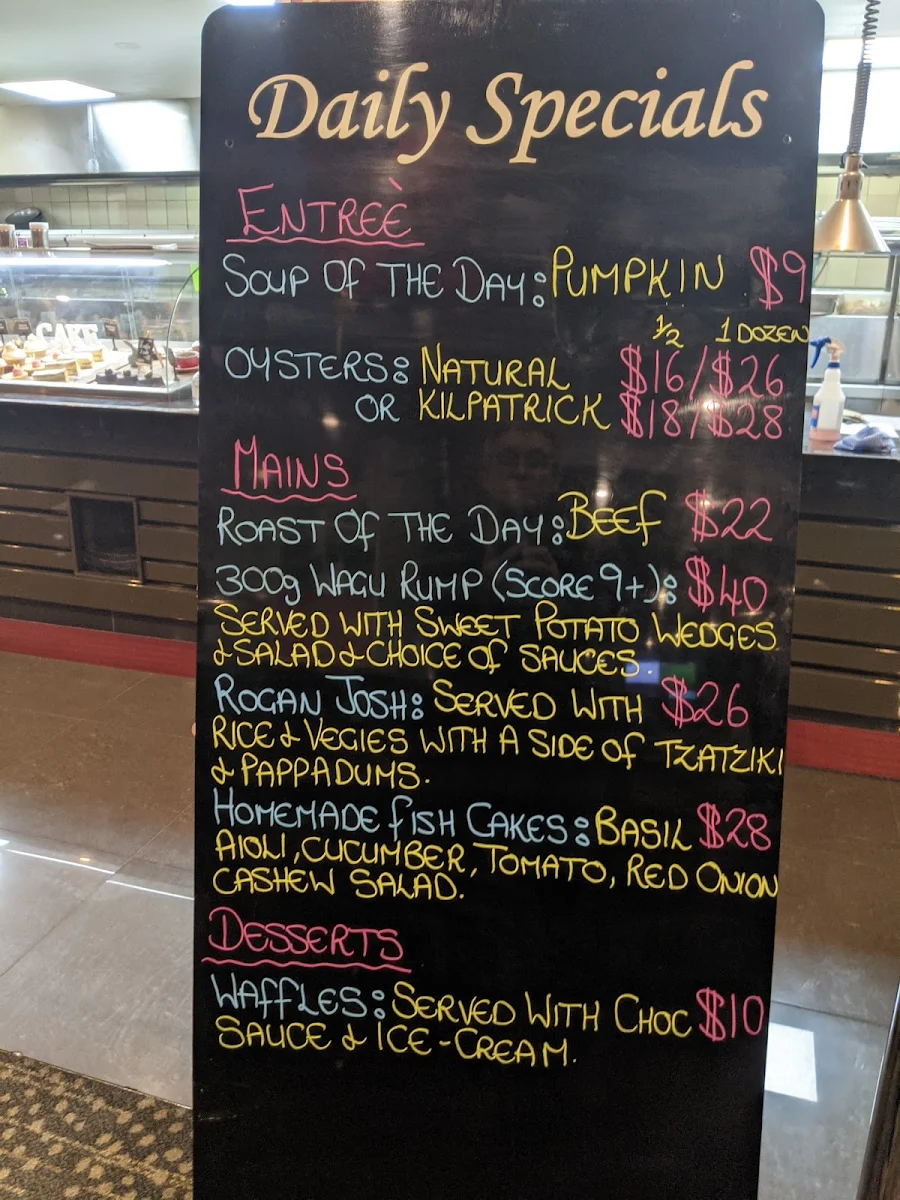 Daily Specials
ENTREÈ
SOUP OF THE DAY: PUMPKIN $9
1/2 1 DOZEN
OYSTERS: NATURAL $16/$26
OR KILPATRICK $18/$28
MAINS
ROAST OF THE DAY: BEEF $22
300g WAGU RUMP (SCORE 9+): $40
SERVED WITH SWEET POTATO WEDGES
& SALAD & CHOICE OF SAUCES.
ROGAN JOSH: SERVED WITH $26
RICE & VEGIES WITH A SIDE OF TZATZIKI
& PAPPADUMS.
HOMEMADE FISH CAKES: BASIL $28
AIOLI, CUCUMBER, TOMATO, RED ONION
CASHEW SALAD.
DESSERTS
WAFFLES: SERVED WITH CHOC $10
SAUCE & ICE-CREAM.
CAKE